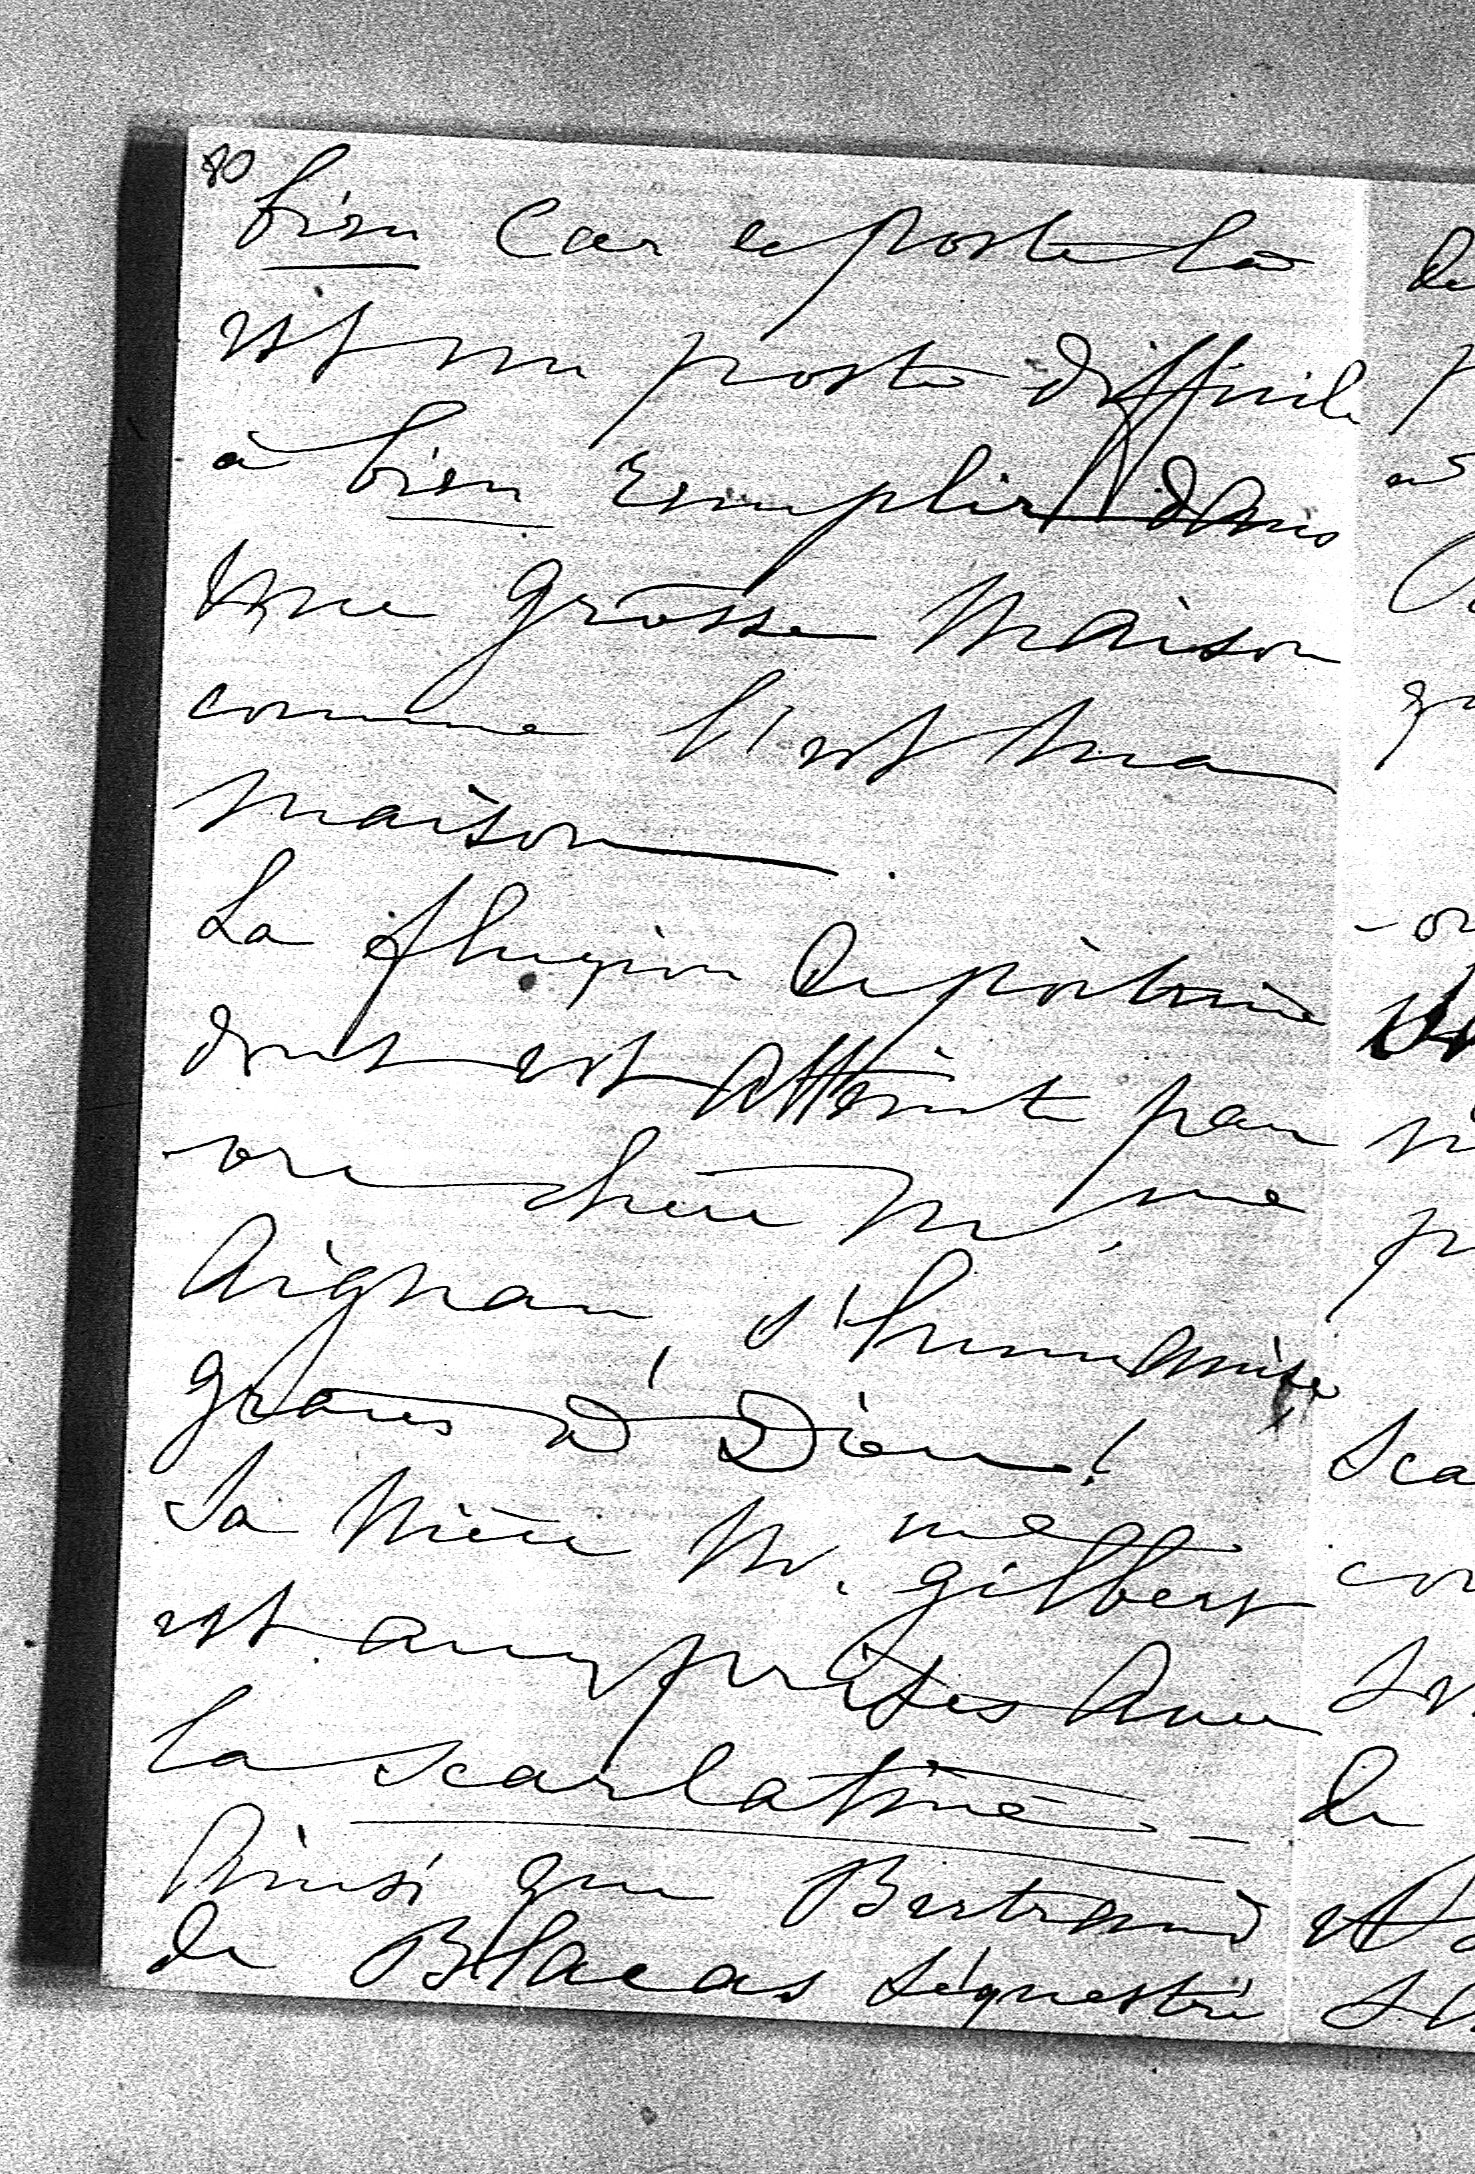 80
bien car ce poste là
est un poste difficile
à bien remplir dans
une grosse maison
comme l'est ma
maison.
La fluxion de poitrine
dont est atteinte pau
-vre chère Mme
Aignan, s'humanise
grâces à Dieu!
Sa nièce Mme Gilbert
est aux prises avec
la scarlatine -
Ainsi que Bertrand
de Blacas séquestré